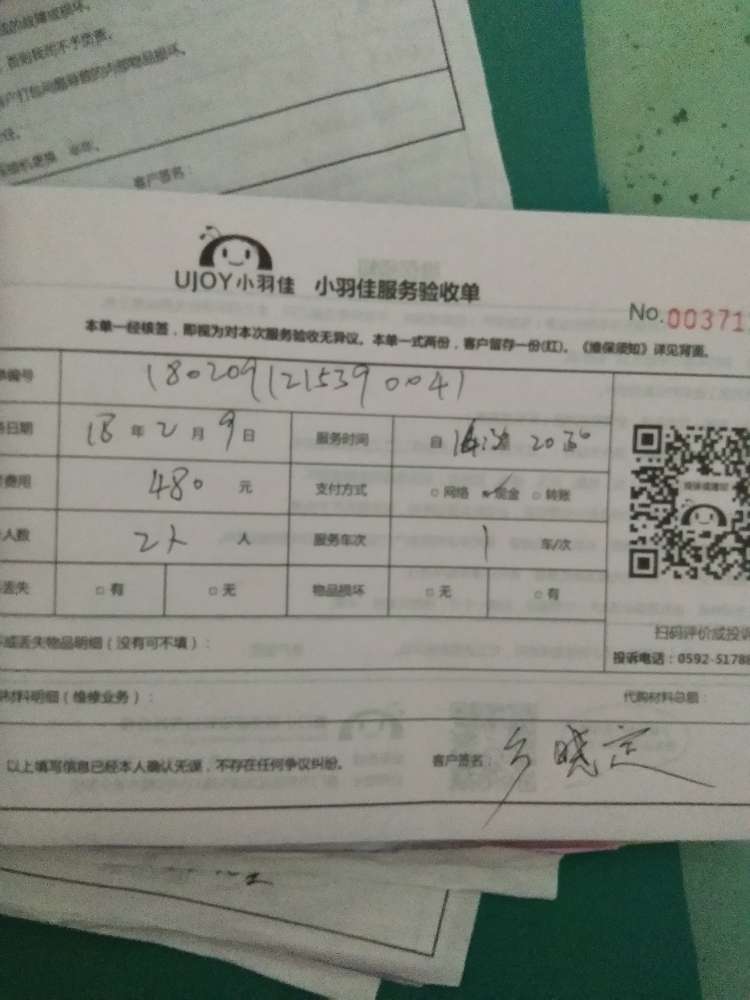 的故障或损坏。
否则我司不予负责。
客户打包问题导致的内部物品损坏。
客户签名:
UJOY小羽佳 小羽佳服务验收单
No.00371
本单一经核签,即视为对本次服务验收无异议。本单一式两份,客户留存一份(红)。《维保须知》详见背面。
单编号 180209121539 0041
日期 18 年 2 月 9 日 服务时间 自 至 20
费用 480 元 支付方式 □网络 现金 □转账
人数 2人 人 服务车次 1 车/次
丢失 □有 □无 物品损坏 □无 □有
扫码评价或投诉
或丢失物品明细(没有可不填):
投诉电话:0592-51788
材料明细(维修业务): 代购材料总额:
以上填写信息已经本人确认无误,不存在任何争议纠纷。 客户签名: